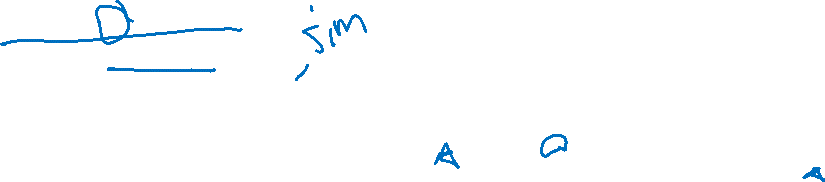 D
jim
A
A